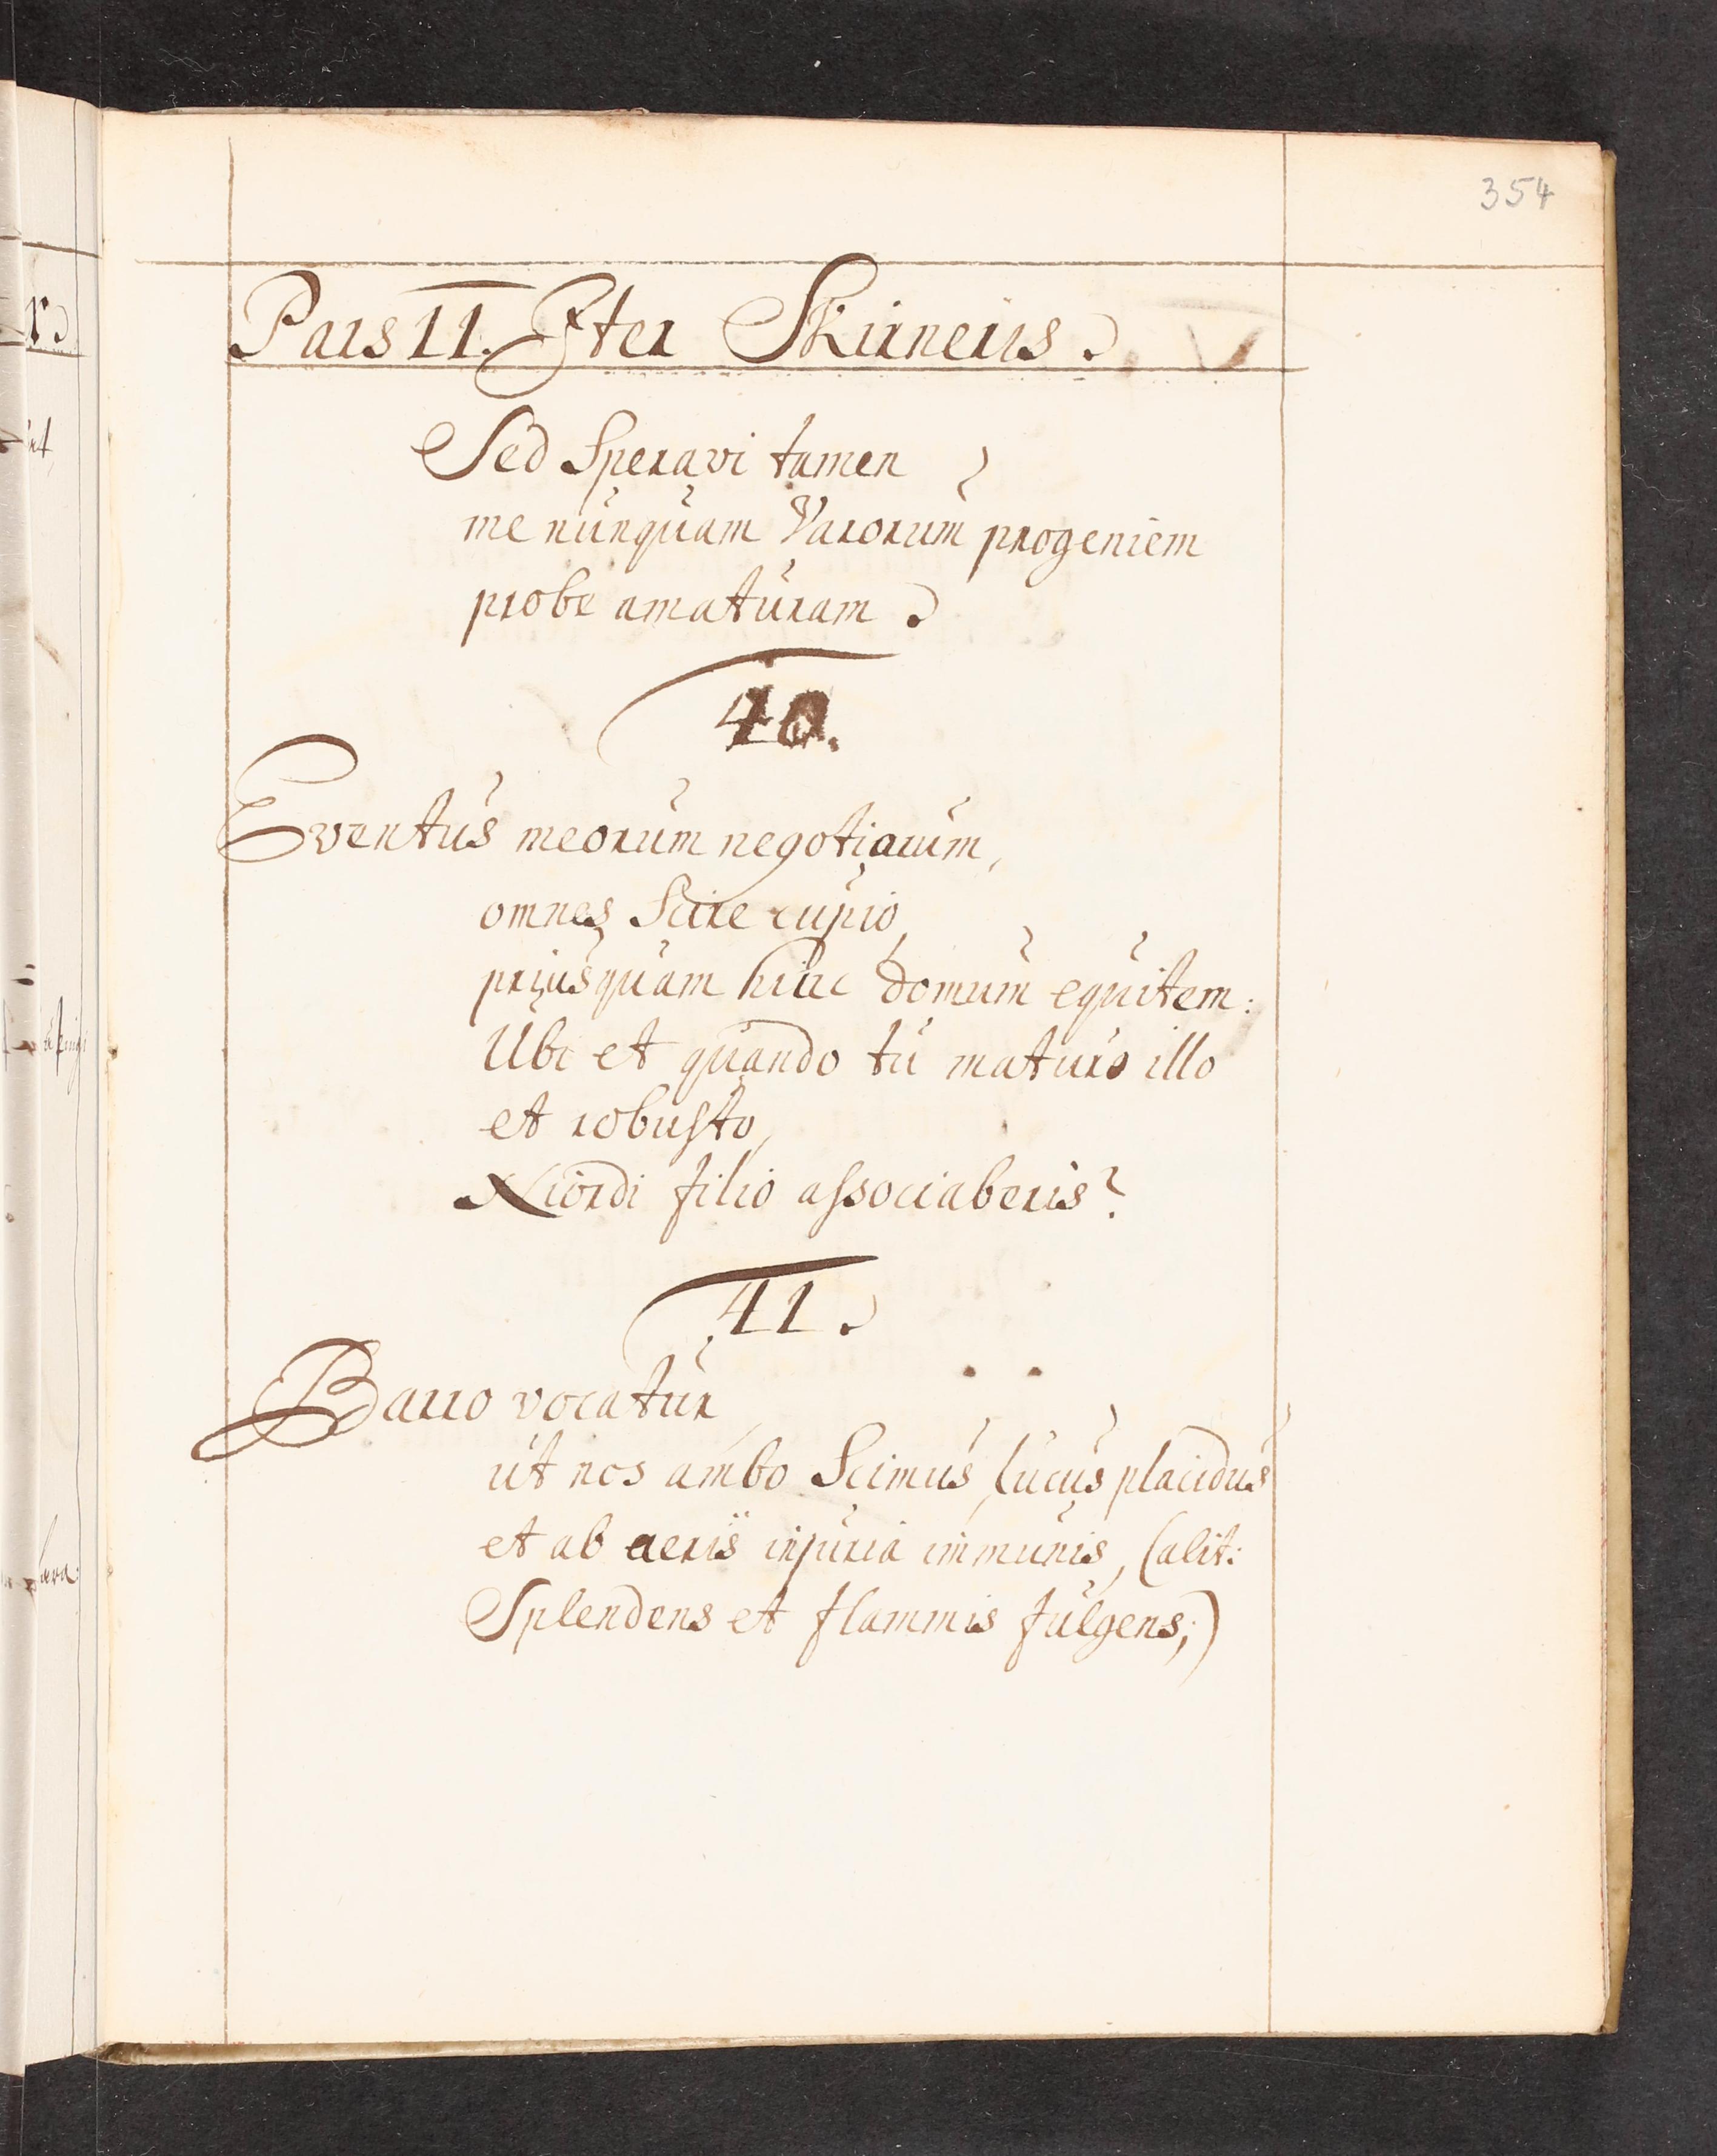 354
Pars II. Iter Skirneris.
Sed Speravi tamen
me nunquam Varorum progeniem
probe amaturam.
40.
Eventus meorum negotiorum,
omnes Scire cupio,
priusquam hinc domum equitem:
Ubi et quando tu maturo illo
et robusto,
Niördi filio associaberis?
41.
Barro vocatur
ut nos ambo Scimus, lucus placidus
et ab aeris injuria immunis, (alit:
Splendens et flammis fulgens;)